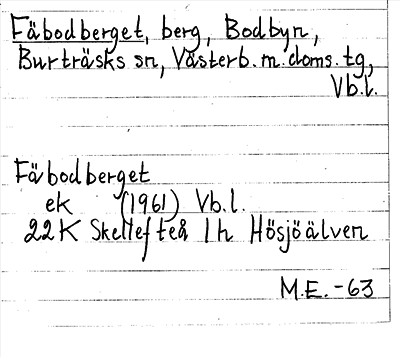 Fäbodberget, berg, Bodbyn,
Burträsks sn, Västerb. m. doms. tg,
Vb.l.
Fäbodberget
ek (1961) Vb.l.
22K Skellefteå 1h Hösjöälven
M.E. -63